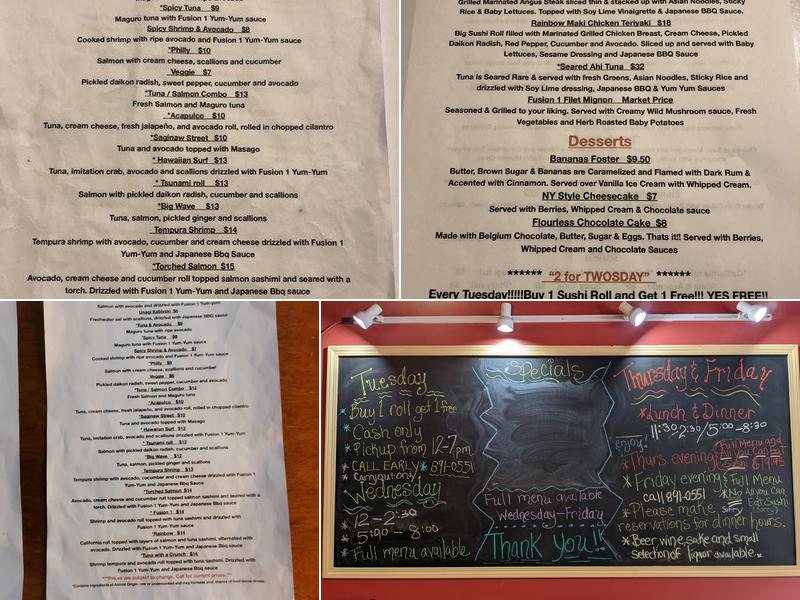 *Spicy Tuna $9
Maguro tuna with Fusion 1 Yum-Yum sauce
Spicy Shrimp & Avocado $8
Cooked shrimp with ripe avocado and Fusion 1 Yum-Yum sauce
*Philly $10
Salmon with cream cheese, scallions and cucumber
Veggie $7
Pickled daikon radish, sweet pepper, cucumber and avocado
*Tuna / Salmon Combo $13
Fresh Salmon and Maguro tuna
*Acapulco $10
Tuna, cream cheese, fresh jalapeño, and avocado roll, rolled in chopped cilantro
*Saginaw Street $10
Tuna and avocado topped with Masago
* Hawaiian Surf $13
Tuna, imitation crab, avocado and scallions drizzled with Fusion 1 Yum-Yum
* Tsunami roll $13
Salmon with pickled daikon radish, cucumber and scallions
*Big Wave $13
Tuna, salmon, pickled ginger and scallions
Tempura Shrimp $14
Tempura shrimp with avocado, cucumber and cream cheese drizzled with Fusion 1
Yum-Yum and Japanese Bbq Sauce
*Torched Salmon $15
Avocado, cream cheese and cucumber roll topped salmon sashimi and seared with a
torch. Drizzled with Fusion 1 Yum-Yum and Japanese Bbq sauce
Grilled Marinated Angus Steak sliced thin and stacked with Asian Noodles, Sticky
Rice & Baby Lettuces. Topped with Soy Lime Vinaigrette & Japanese BBQ Sauce.
Rainbow Maki Chicken Teriyaki $18
Big Sushi Roll filled with Marinated Grilled Chicken Breast, Cream Cheese, Pickled
Daikon Radish, Red Pepper, Cucumber and Avocado. Sliced up and served with Baby
Lettuces, Sesame Dressing and Japanese BBQ Sauce
*Seared Ahi Tuna $32
Tuna is Seared Rare & served with fresh Greens, Asian Noodles, Sticky Rice and
drizzled with Soy Lime dressing, Japanese BBQ & Yum Yum Sauces
Fusion 1 Filet Mignon Market Price
Seasoned & Grilled to your liking. Served with Creamy Wild Mushroom sauce, Fresh
Vegetables and Herb Roasted Baby Potatoes
Desserts
Bananas Foster $9.50
Butter, Brown Sugar & Bananas are Caramelized and Flamed with Dark Rum &
Accented with Cinnamon. Served over Vanilla Ice Cream with Whipped Cream.
NY Style Cheesecake $7
Served with Berries, Whipped Cream & Chocolate sauce
Flourless Chocolate Cake $8
Made with Belgium Chocolate, Butter, Sugar & Eggs. Thats it!! Served with Berries,
Whipped Cream and Chocolate Sauces
****** "2 for TWOSDAY" ******
Every Tuesday!!!!!Buy 1 Sushi Roll and Get 1 Free!!! YES FREE!!
Salmon with avocado and drizzled with Fusion 1 Yum-Yum
Unagi Kabiyaki $6
Freshwater eel with scallions, drizzled with Japanese BBQ sauce
*Tuna & Avocado $8
Maguro tuna with ripe avocado
*Spicy Tuna $8
Maguro tuna with Fusion 1 Yum-Yum sauce
Spicy Shrimp & Avocado $7
Cooked shrimp with ripe avocado and Fusion 1 Yum-Yum sauce
*Philly $9
Salmon with cream cheese, scallions and cucumber
Veggie $6
Pickled daikon radish, sweet pepper, cucumber and avocado
*Tuna / Salmon Combo $12
Fresh Salmon and Maguro tuna
*Acapulco $10
Tuna, cream cheese, fresh jalapeño, and avocado roll, rolled in chopped cilantro
*Saginaw Street $10
Tuna and avocado topped with Masago
* Hawaiian Surf $12
Tuna, imitation crab, avocado and scallions drizzled with Fusion 1 Yum-Yum
* Tsunami roll $12
Salmon with pickled daikon radish, cucumber and scallions
*Big Wave $12
Tuna, salmon, pickled ginger and scallions
Tempura Shrimp $13
Tempura shrimp with avocado, cucumber and cream cheese drizzled with Fusion 1
Yum-Yum and Japanese Bbq Sauce
*Torched Salmon $14
Avocado, cream cheese and cucumber roll topped salmon sashimi and seared with a
torch. Drizzled with Fusion 1 Yum-Yum and Japanese Bbq sauce
* Fusion 1 $14
Shrimp and avocado roll topped with tuna and drizzled with
Fusion 1 Yum-Yum sauce
*Rainbow $14
California roll topped with layers of salmon and tuna sashimi, alternated with
avocado. Drizzled with Fusion 1 Yum-Yum and Japanese Bbq sauce
*Tuna with a Crunch $14
Shrimp tempura and avocado roll topped with tuna sashimi. Drizzled with
Fusion 1 Yum-Yum and Japanese Bbq sauce
***Prices are subject to change. Call for current prices.***
Tuesday
* Buy 1 roll get 1 free
* Cash only
* Pickup from 12-7pm
* CALL EARLY * 891-0551
* Carryout only
Wednesday
* 12-2:30
* 5:00 - 8:00
* Full menu available
Specials
Full menu available
Wednesday-Friday
Thank you!!
Thursday & Friday
*Lunch & Dinner
11:30-2:30/5:00-8:30
enjoy!
*Thurs. evening
Full Menu and
All You Can Eat
Sushi $19.95
*Friday evening
call 891-0551
Full Menu
*No All You Can
Eat Sushi
(Sorry)
*Please make
reservations for dinner hours.
*Beer, wine, sake and small
selection of liquor available.